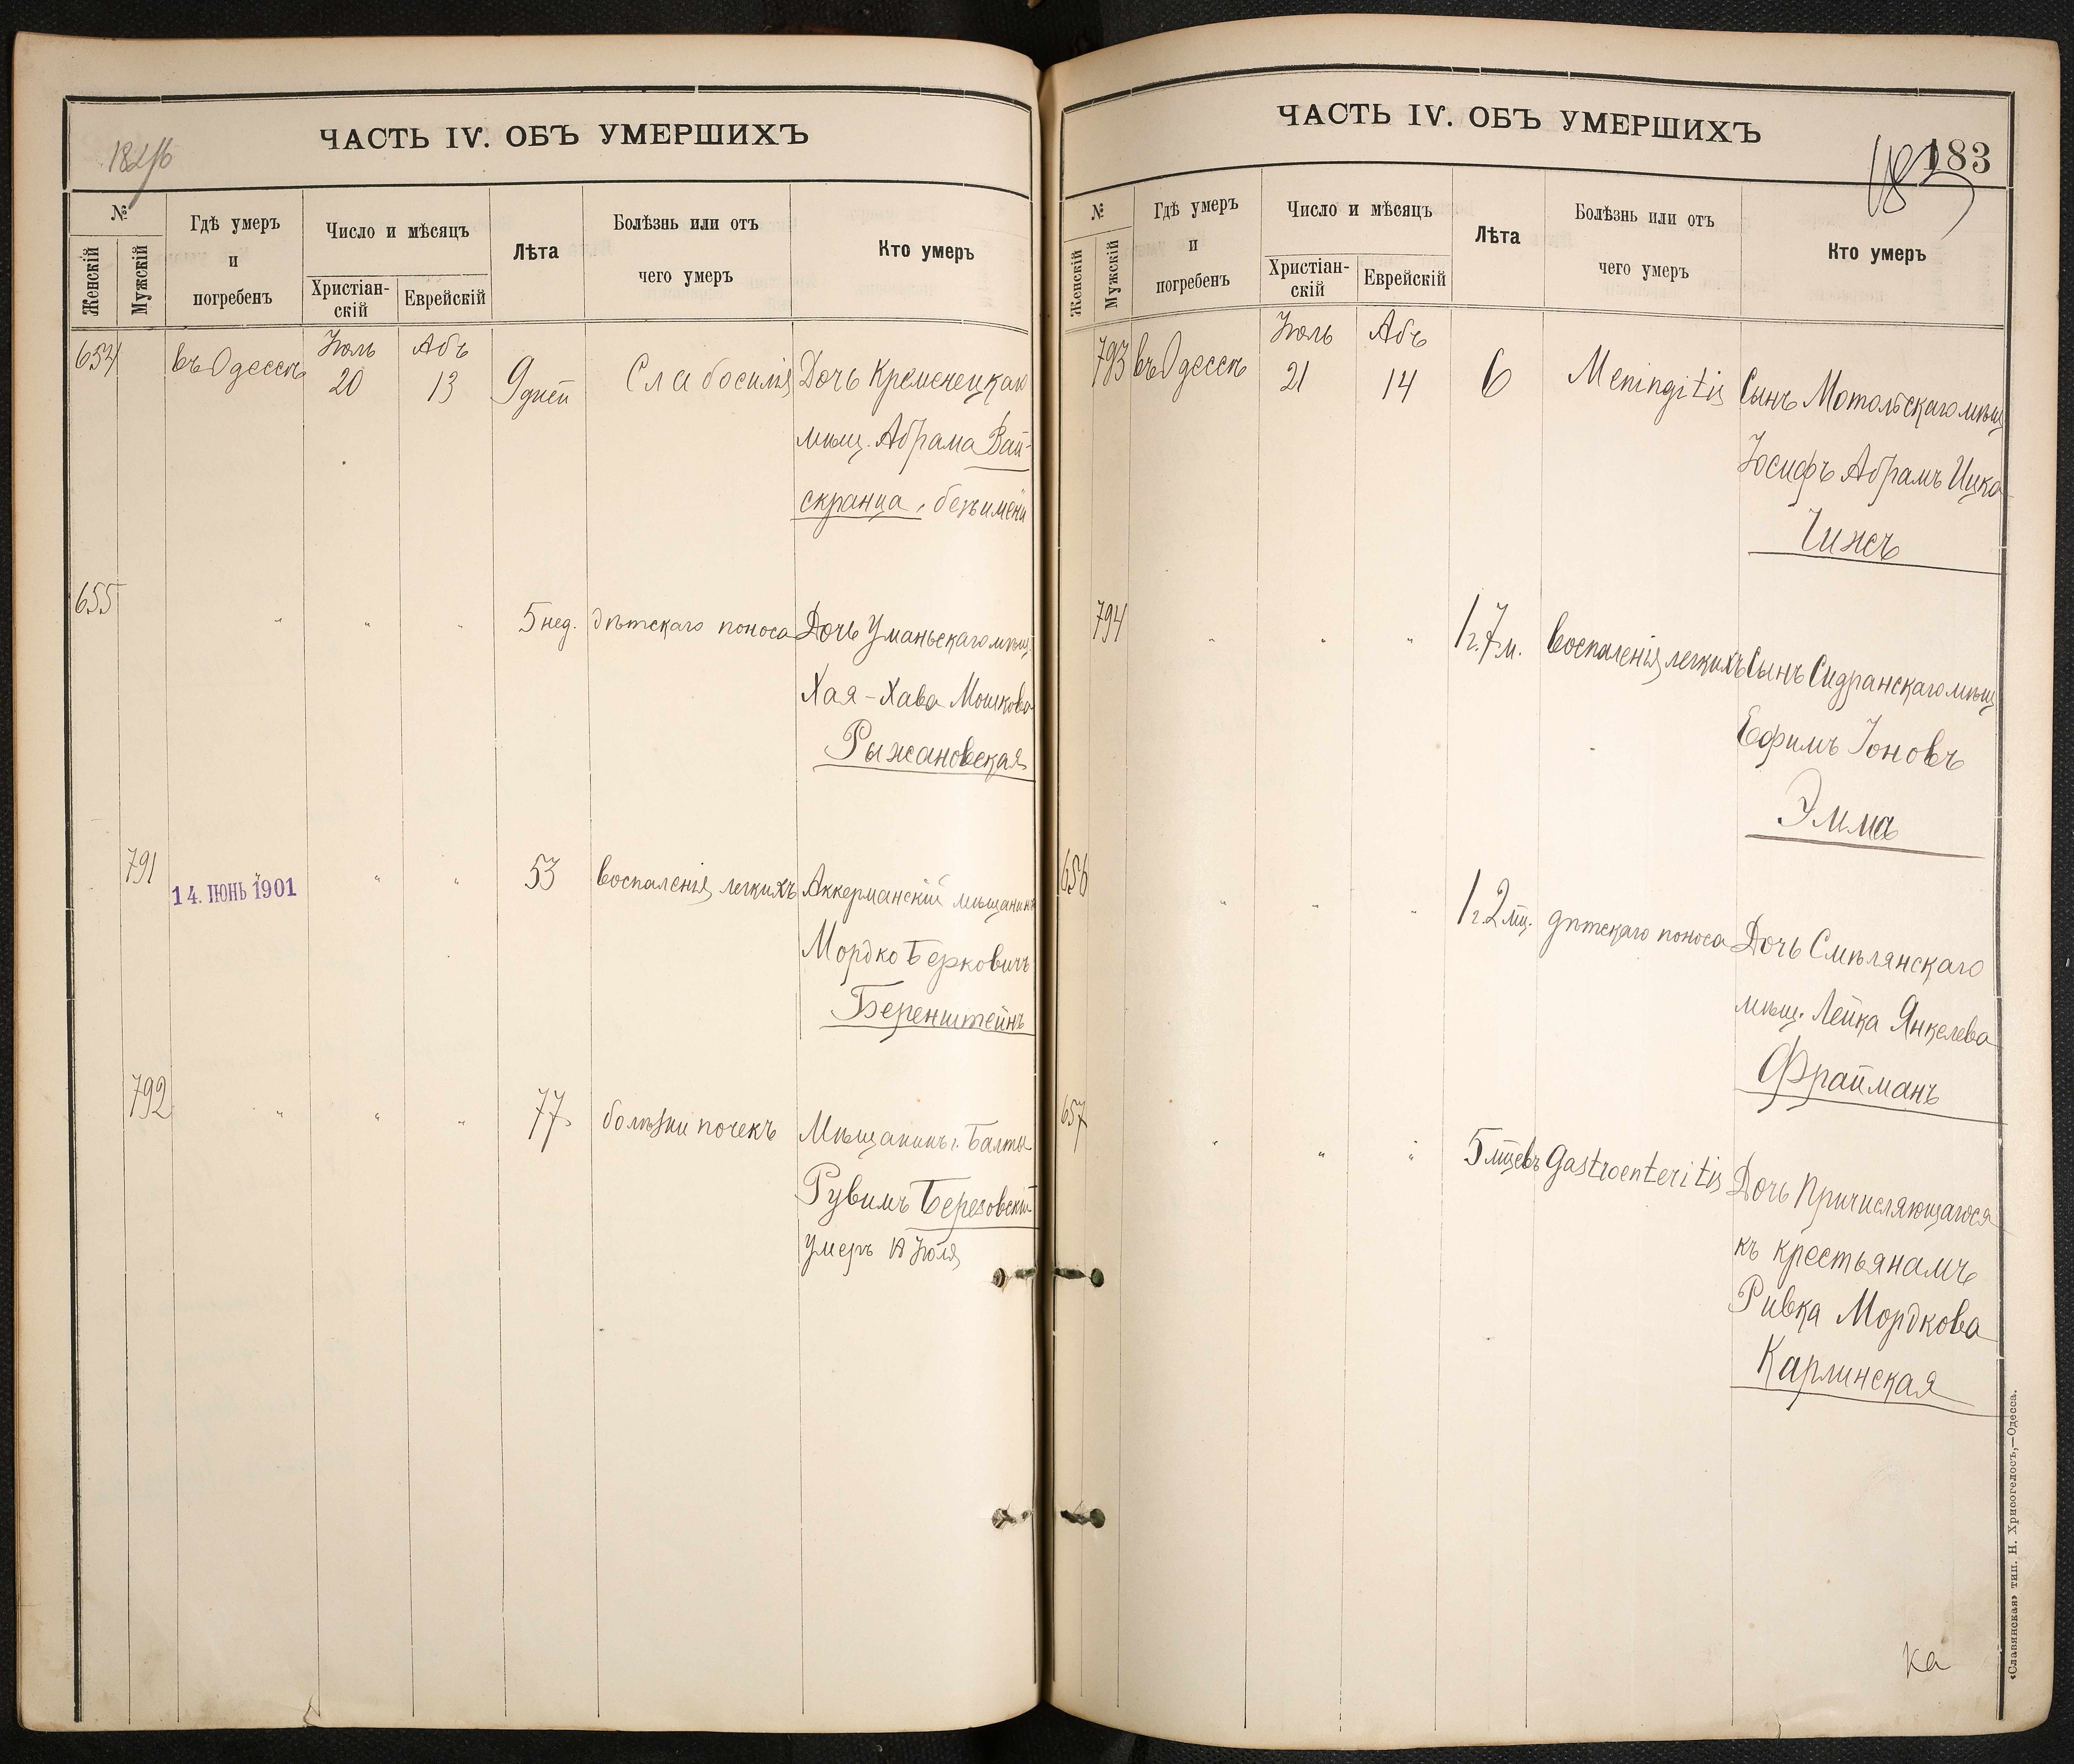 182/б
ЧАСТЬ IV. ОБЪ УМЕРШИХЪ
№
Женскій
Мужскій
Гдѣ умеръ
и
погребенъ
Число и мѣсяцъ
Христіан-
скій
Еврейскій
Лѣта
Болѣзнь или отъ
чего умеръ
Кто умеръ
654 въ Одессѣ Іюль 20 Абъ 13 9 дней Слабосилія Дочь Кременецкаго
мѣщ. Абрама Вай-
скранца, безъимени
655 " " " 5 нед. дѣтскаго поноса Дочь Уманьскаго мѣщ.
Хая-Хава Мошкова
Рыжановская
791 " " " 53 воспаленія легкихъ Аккерманскій мѣщанинъ
14. ІЮНЬ 1901
Мордко Берковичъ
Беренштейнъ
792 " " " 77 болѣзни почекъ Мѣщанинъ г. Балты
Рувимъ Березовскій
умеръ Іюля
ЧАСТЬ IV. ОБЪ УМЕРШИХЪ
183
183
№
Женскій
Мужскій
Гдѣ умеръ
и
погребенъ
Число и мѣсяцъ
Христіан-
скій
Еврейскій
Лѣта
Болѣзнь или отъ
чего умеръ
Кто умеръ
793 въ Одессѣ Іюль 21 Абъ 14 6 Meningitis Сынъ Мотольскаго мѣщ
Іосифъ Абрамъ Ицко
Чижъ
794 " " " 1 г. 7 м. воспаленія легкихъ Сынъ Сидранскаго мѣщ
Ефимъ Іоновъ
Эмма
656 " " " 1 г. 2 мц. дѣтскаго поноса Дочь Смѣлянскаго
мѣщ. Лейка Янкелева
Фрайманъ
657 " " " 5 мцевъ Gastroenteritis Дочь Причисляющагося
къ крестьянамъ
Ривка Мордкова
Карлинская
ка
«Славянская» тип. Н. Хрисогелосъ,—Одесса.